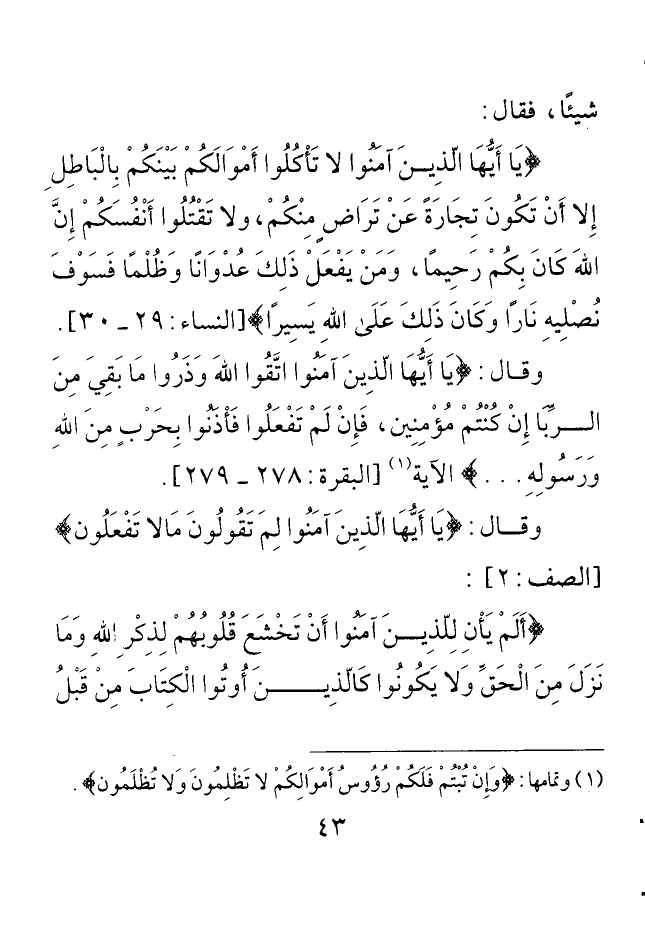 شيئًا، فقال:
﴿يَا أَيُّهَا الّذِيـنَ آمَنُوا لا تَأْكُلُوا أَمْوَالَكُمْ بَيْنَكُمْ بِالْبَاطِلِ
إِلا أَنْ تَكُونَ تِجَارَةً عَنْ تَرَاضٍ مِنْكُمْ، ولا تَقْتُلُوا أَنْفُسَكُمْ إِنَّ
اللهَ كَانَ بِكُمْ رَحِيمًا، وَمَنْ يَفْعَلْ ذَلِكَ عُدْوَانًا وَظُلْمًا فَسَوْفَ
نُصْلِيهِ نَارًا وَكَانَ ذَلِكَ عَلَىٰ اللهِ يَسِيرًا﴾[النساء: ٢٩ ـ ٣٠].
وقـال: ﴿يَا أَيُّهَا الّذِينَ آمَنُوا اتَّقُوا اللهَ وَذَرُوا مَا بَقِيَ مِنَ
الــرِّبَا إِنْ كُنْتُمْ مُؤْمِنِين، فَإِنْ لَمْ تَفْعَلُوا فَأْذَنُوا بِحَرْبٍ مِنَ اللهِ
وَرَسُولِهِ. . . ﴾ الآية(١) [البقرة: ٢٧٨ ـ ٢٧٩].
وقــال: ﴿يَا أَيُّهَا الّذينَ آمَنُوا لِمَ تَقُولُونَ مَالا تَفْعَلُون﴾
[الصف: ٢] :
﴿أَلَمْ يَأْنِ لِلّذِيــنَ آمَنُوا أَنْ تَخْشَعَ قُلُوبُهُمْ لِذِكْرِ اللهِ وَمَا
نَزَلَ مِنَ الْحَقِّ وَلا يَكُونُوا كَالّذِيــــنَ أُوتُوا الْكِتَابَ مِنْ قَبْلُ
(١) وتمامها: ﴿وَإِنْ تُبْتُمْ فَلَكُمْ رُؤُوسُ أَمْوَالِكُمْ لا تَظْلِمُونَ وَلا تُظْلَمُون﴾.
٤٣